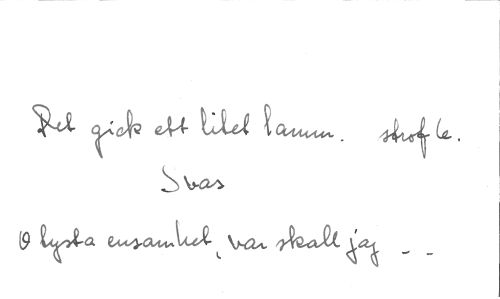 Det gick ett litet lamm. strof 6.
Svas
O tysta ensamhet, var skall jag - -